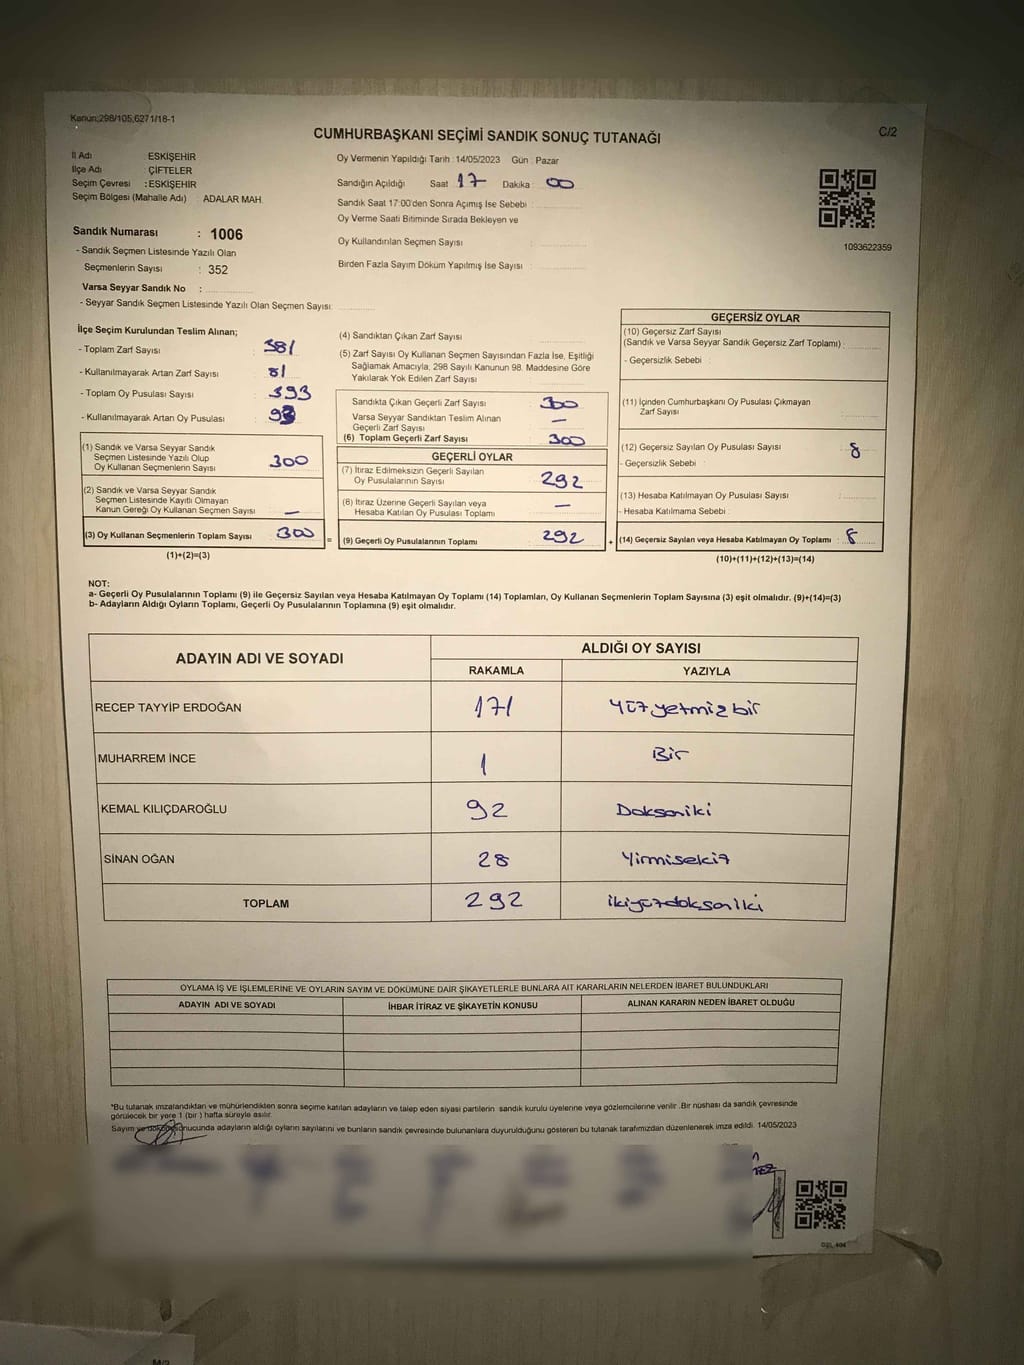 Kanun;298/105,6271/18-1
CUMHURBAŞKANI SEÇİMİ SANDIK SONUÇ TUTANAĞI
C/2
İl Adı ESKİŞEHİR
İlçe Adı : ÇİFTELER
Seçim Çevresi : ESKİŞEHİR
Seçim Bölgesi (Mahalle Adı) : ADALAR MAH.
Oy Vermenin Yapıldığı Tarih : 14/05/2023 Gün : Pazar
Sandığın Açıldığı Saat : 17 Dakika : 00
Sandık Saat 17:00'den Sonra Açımış İse Sebebi :
Oy Verme Saati Bitiminde Sırada Bekleyen ve
Oy Kullandırılan Seçmen Sayısı :
Birden Fazla Sayım Döküm Yapılmış İse Sayısı :
1093622359
Sandık Numarası : 1006
- Sandık Seçmen Listesinde Yazılı Olan
Seçmenlerin Sayısı : 352
Varsa Seyyar Sandık No :
- Seyyar Sandık Seçmen Listesinde Yazılı Olan Seçmen Sayısı:
İlçe Seçim Kurulundan Teslim Alınan;
- Toplam Zarf Sayısı : 381
- Kullanılmayarak Artan Zarf Sayısı : 81
- Toplam Oy Pusulası Sayısı : 393
- Kullanılmayarak Artan Oy Pusulası : 93
(1) Sandık ve Varsa Seyyar Sandık
Seçmen Listesinde Yazılı Olup
Oy Kullanan Seçmenlerin Sayısı : 300
(2) Sandık ve Varsa Seyyar Sandık
Seçmen Listesinde Kayıtlı Olmayan
Kanun Gereği Oy Kullanan Seçmen Sayısı : —
(3) Oy Kullanan Seçmenlerin Toplam Sayısı : 300
(1)+(2)=(3)
(4) Sandıktan Çıkan Zarf Sayısı :
(5) Zarf Sayısı Oy Kullanan Seçmen Sayısından Fazla İse, Eşitliği
Sağlamak Amacıyla, 298 Sayılı Kanunun 98. Maddesine Göre
Yakılarak Yok Edilen Zarf Sayısı :
Sandıkta Çıkan Geçerli Zarf Sayısı : 300
Varsa Seyyar Sandıktan Teslim Alınan
Geçerli Zarf Sayısı : —
(6) Toplam Geçerli Zarf Sayısı : 300
GEÇERLİ OYLAR
(7) İtiraz Edilmeksizin Geçerli Sayılan
Oy Pusulalarının Sayısı : 292
(8) İtiraz Üzerine Geçerli Sayılan veya
Hesaba Katılan Oy Pusulası Toplamı : —
= (9) Geçerli Oy Pusulalarının Toplamı : 292 +
GEÇERSİZ OYLAR
(10) Geçersiz Zarf Sayısı
(Sandık ve Varsa Seyyar Sandık Geçersiz Zarf Toplamı) :
- Geçersizlik Sebebi :
(11) İçinden Cumhurbaşkanı Oy Pusulası Çıkmayan
Zarf Sayısı :
(12) Geçersiz Sayılan Oy Pusulası Sayısı : 8
- Geçersizlik Sebebi :
(13) Hesaba Katılmayan Oy Pusulası Sayısı :
- Hesaba Katılmama Sebebi :
(14) Geçersiz Sayılan veya Hesaba Katılmayan Oy Toplamı : 8
(10)+(11)+(12)+(13)=(14)
NOT:
a- Geçerli Oy Pusulalarının Toplamı (9) ile Geçersiz Sayılan veya Hesaba Katılmayan Oy Toplamı (14) Toplamları, Oy Kullanan Seçmenlerin Toplam Sayısına (3) eşit olmalıdır. (9)+(14)=(3)
b- Adayların Aldığı Oyların Toplamı, Geçerli Oy Pusulalarının Toplamına (9) eşit olmalıdır.
ADAYIN ADI VE SOYADI
ALDIĞI OY SAYISI
RAKAMLA YAZIYLA
RECEP TAYYİP ERDOĞAN 171 Yüzyetmizbir
MUHARREM İNCE 1 Bir
KEMAL KILIÇDAROĞLU 92 Doksaniki
SİNAN OĞAN 28 Yirmisekiz
TOPLAM 292 ikiyüzdoksaniki
OYLAMA İŞ VE İŞLEMLERİNE VE OYLARIN SAYIM VE DÖKÜMÜNE DAİR ŞİKAYETLERLE BUNLARA AİT KARARLARIN NELERDEN İBARET BULUNDUKLARI
ADAYIN ADI VE SOYADI İHBAR İTİRAZ VE ŞİKAYETİN KONUSU ALINAN KARARIN NEDEN İBARET OLDUĞU
*Bu tutanak imzalandıktan ve mühürlendikten sonra seçime katılan adayların ve talep eden siyasi partilerin sandık kurulu üyelerine veya gözlemcilerine verilir .Bir nüshası da sandık çevresinde
görülecek bir yere 1 (bir ) hafta süreyle asılır.
Sayım ve döküm sonucunda adayların aldığı oyların sayılarını ve bunların sandık çevresinde bulunanlara duyurulduğunu gösteren bu tutanak tarafımızdan düzenlenerek imza edildi. 14/05/2023